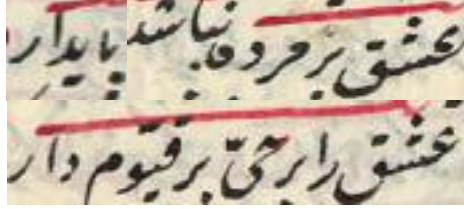 عشق بر مرده نباشد پایدار
عشق را بر حیّ بر قیّوم دار